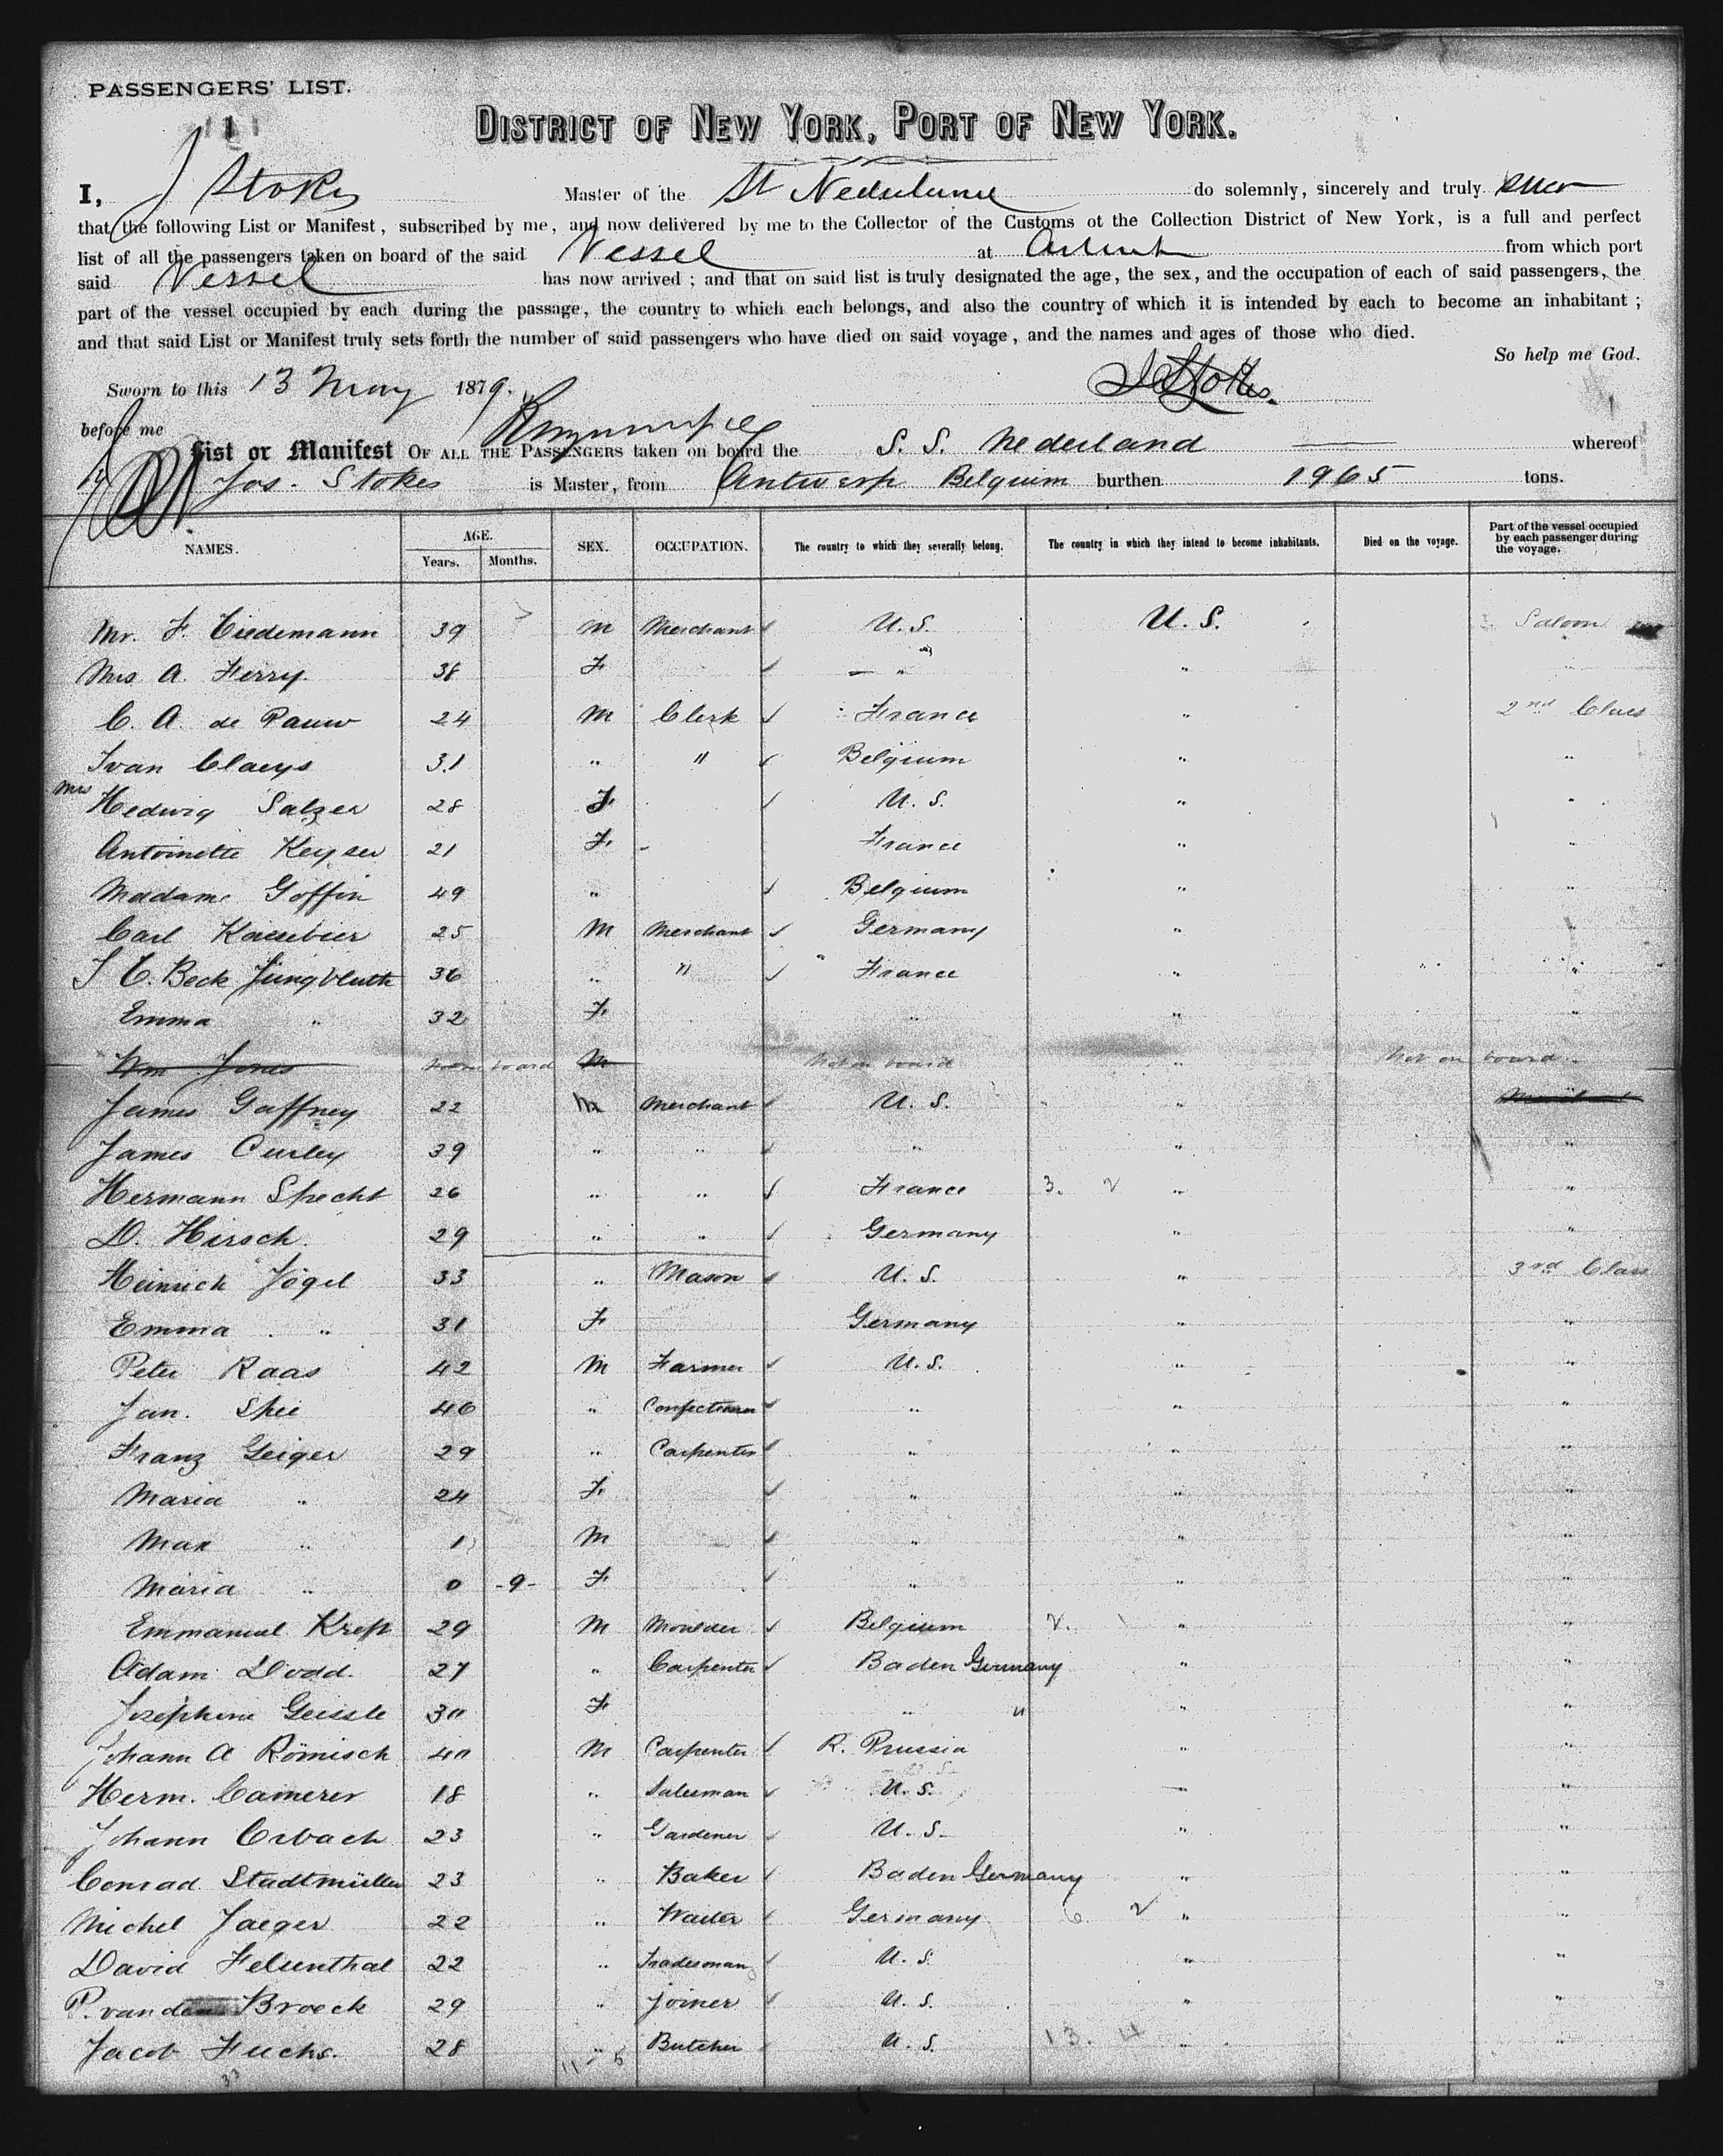 PASSENGERS' LIST.
1
DISTRICT OF NEW YORK, PORT OF NEW YORK.
I, J Stokes Master of the St Nederland do solemnly, sincerely and truly swear
that the following List or Manifest, subscribed by me, and now delivered by me to the Collector of the Customs ot the Collection District of New York, is a full and perfect
list of all the passengers taken on board of the said Vessel at from which port
said Vessel has now arrived ; and that on said list is truly designated the age, the sex, and the occupation of each of said passengers, the
part of the vessel occupied by each during the passage, the country to which each belongs, and also the country of which it is intended by each to become an inhabitant ;
and that said List or Manifest truly sets forth the number of said passengers who have died on said voyage, and the names and ages of those who died.
So help me God.
Sworn to this 13 May 1879. J Stokes.
before me
List or Manifest OF ALL THE PASSENGERS taken on board the S. S. Nederland whereof
Jos. Stokes is Master, from Antwerp Belgium burthen 1965 tons.
NAMES. AGE. Years. Months. SEX. OCCUPATION. The country to which they severally belong. The country in which they intend to become inhabitants. Died on the voyage. Part of the vessel occupied by each passenger during the voyage.
Mr. F. Tiedemann 39 M Merchant U.S. U.S. Saloon
Mrs A. Ferry 38 F " "
C. A. de Pauw 24 M Clerk France " 2nd Class
Ivan Claeys 31 " " Belgium " "
Mrs Hedwig Salzer 28 F U.S. " "
Antoinette Keyser 21 F France " "
Madame Goffin 49 " Belgium " "
Carl Kaesebier 25 M Merchant Germany " "
J C. Beck Jungbluth 36 " " France " "
Emma " 32 F " " "
Wm Jones Not on board M Not on board " Not on board
James Gaffney 22 M Merchant U.S. "
James Curley 39 " " " " "
Hermann Specht 26 " " France 3. 2 " "
D. Hirsch. 29 " " Germany " "
Heinrich Jögel 33 " Mason U.S. " 3rd Class
Emma " 31 F Germany " "
Peter Raas 42 M Farmer U.S. " "
Jan. Shie 46 " Confectioner " " "
Franz Geiger 29 " Carpenter " " "
Maria " 24 F " " "
Max " 1 M " " "
Maria " 0 -9- F " " "
Emmanuel Kreft 29 M Moulder Belgium 2. " "
Adam Dodd. 27 " Carpenter Baden Germany " "
Josephine Geissle 30 F " " " "
Johann A Römisch 40 M Carpenter R. Prussia " "
Herm. Camerer 18 " Salesman U.S. " "
Johann Orbach 23 " Gardener U.S. " "
Conrad Stadtmüller 23 " Baker Baden Germany " "
Michel Jaeger 22 " Waiter Germany 6. 2 " "
David Felsenthal 22 " Tradesman U.S. " "
P. van den Broeck 29 " Joiner U.S. " "
Jacob Fuchs. 28 " Butcher U.S. 13. 4 " "
33 11 - 5